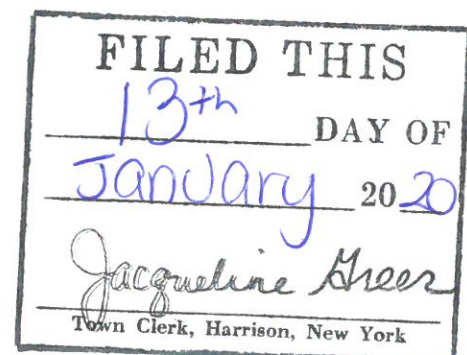 FILED THIS
13th DAY OF
January 2020
Jacqueline Greer
Town Clerk, Harrison, New York